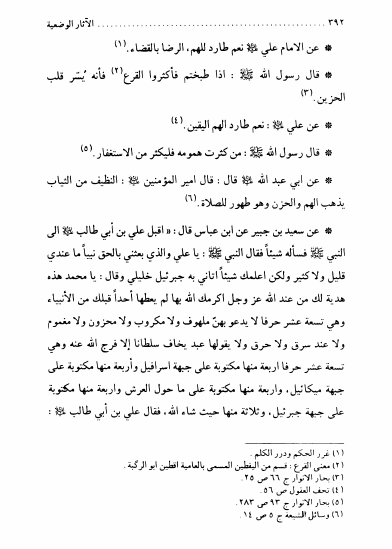 ٣٩٢ ........................ الآثار الوضعية
* عن الامام علي ﷺ نعم طارد للهم، الرضا بالقضاء.(١)
* قال رسول الله ﷺ : اذا طبختم فأكثروا القرع(٢) فأنه يُسّر قلب
الحزين.(٣)
* عن علي ﷺ : نعم طارد الهم اليقين.(٤)
* قال رسول الله ﷺ : من كثرت همومه فليكثر من الاستغفار.(٥)
* عن ابي عبد الله ﷺ قال : قال امير المؤمنين ﷺ : النظيف من الثياب
يذهب الهم والحزن وهو طهور للصلاة.(٦)
* عن سعيد بن جبير عن ابن عباس قال : « اقبل علي بن أبي طالب ﷺ الى
النبي ﷺ فسأله شيئاً فقال النبي ﷺ : يا علي والذي بعثني بالحق نبياً ما عندي
قليل ولا كثير ولكن اعلمك شيئاً اتاني به جبرئيل خليلي وقال : يا محمد هذه
هدية لك من عند الله عز وجل اكرمك الله بها لم يعطها أحداً قبلك من الأنبياء
وهي تسعة عشر حرفا لا يدعو بهنّ ملهوف ولا مكروب ولا محزون ولا مغموم
ولا عند سرق ولا حرق ولا يقولها عبد يخاف سلطانا إلا فرج الله عنه وهي
تسعة عشر حرفا اربعة منها مكتوبة على جبهة اسرافيل وأربعة منها مكتوبة على
جبهة ميكائيل، واربعة منها مكتوبة على ما حول العرش واربعة منها مكتوبة
على جبهة جبرئيل، وثلاثة منها حيث شاء الله، فقال علي بن أبي طالب ﷺ :
(١) غرر الحكم ودرر الكلم .
(٢) معنى القرع : قسم من اليقطين المسمى بالعامية افطين ابو الرگبة .
(٣) بحار الانوار ج ٦٦ ص ٢٥.
(٤) تحف العقول ص ٥٦.
(٥) بحار الانوار ج ٩٣ ص ٢٨٣.
(٦) وسائل الشيعة ج ٥ ص ١٤.